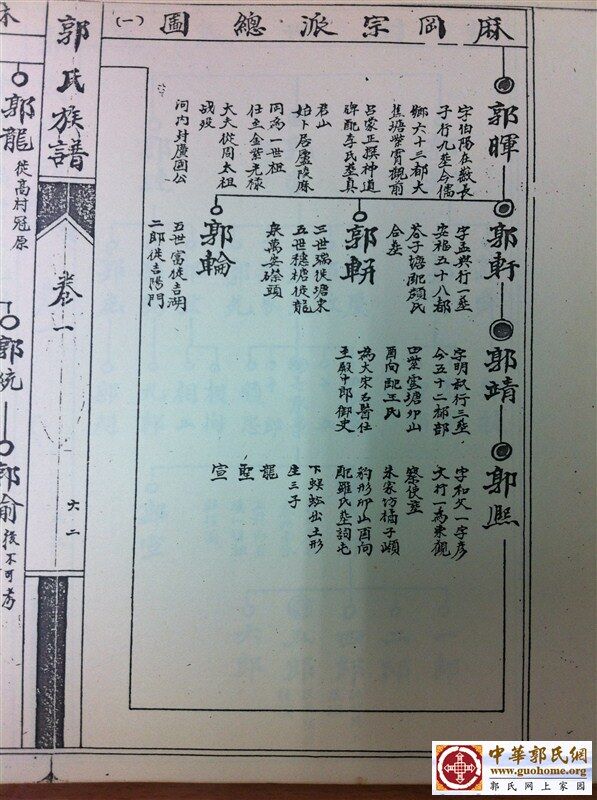 麻岡宗派總圖(一)
郭暉
字伯陽在敬長
子行九塟今儒
鄉六十三都大
蕉塘紫霄觀前
呂蒙正撰神道
碑配李氏塟真
君山
始卜居廬陵麻
岡為一世祖
仕至金紫光祿
大夫從周太祖
戰歿
河內封慶國公
郭軒
字孟興行一塟
安福五十八都
谷子塘配顏氏
合塟
郭軿
三世瑞徙塘東
五世穗穗徙龍
泉萬安磜頭
郭輪
五世富徙吉湖
二郎徙吉陽門
郭靖
字明叔行三塟
今五十二都鄒
田業雲塘卯山
酉向配王氏
為大宋名醫仕
至殿中郎御史
郭熙
字和父一字彥
文行一為東觀
察使塟
朱家坊橘子嶺
豹形卯山酉向
配羅氏塟詞屯
下蜈蚣出土形
生三子
龍
聖
宣
郭氏族譜
卷一
六二
郭龍
徙高村冠原
郭統
郭俞
後不可考
中華郭氏網
www.guohome.org
郭氏網上家園